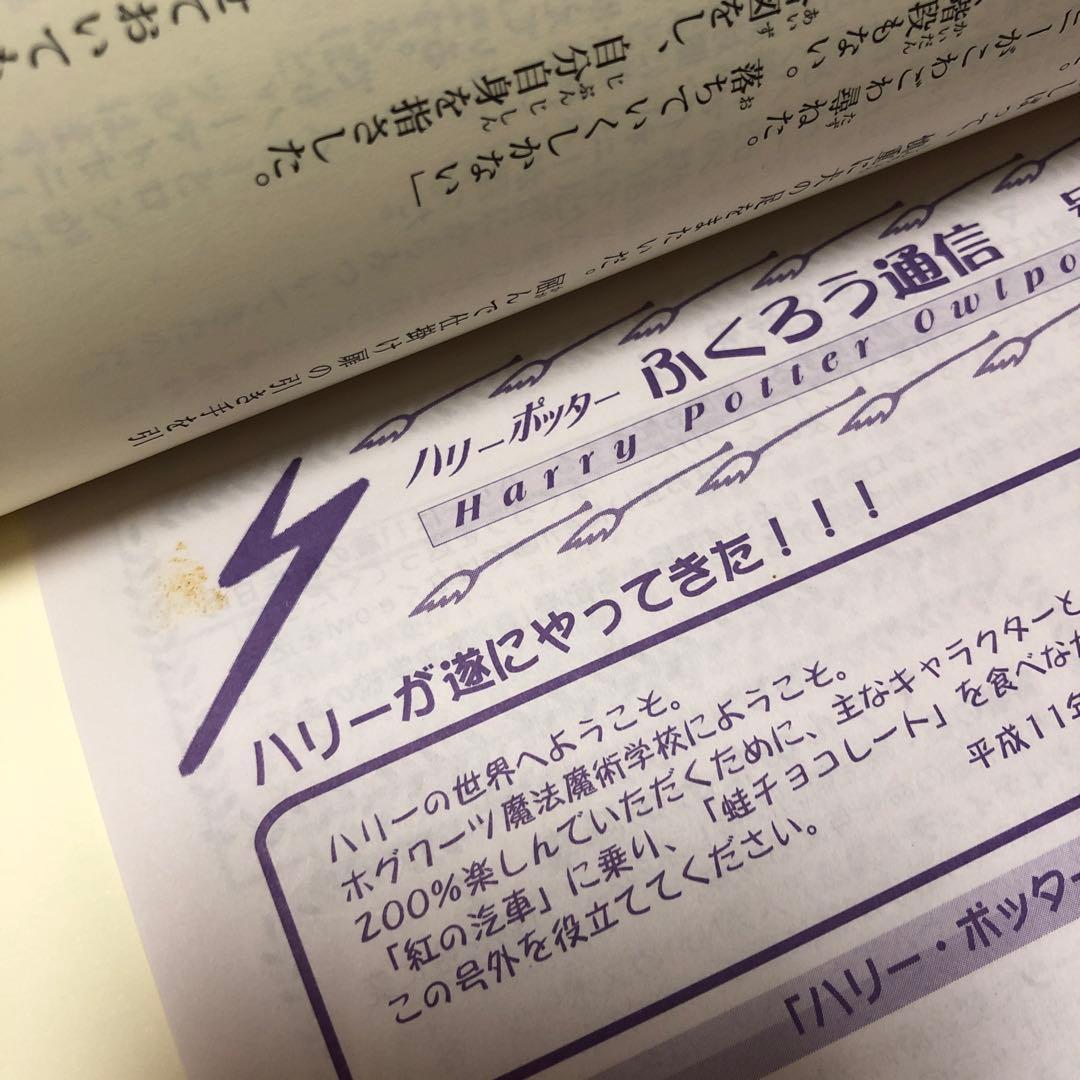 せておいてあ
図をし、自分自身を指さした。
階段もない。落ちていくしかない」
ニーがこわごわ尋ねた。
慎重に犬の足をまたいだ。屈んで仕掛け扉の引き手を引
ハリーポッター ふくろう通信
Harry Potter Owlpo
ハリーが遂にやってきた!!!
ハリーの世界へようこそ。
ホグワーツ魔法魔術学校にようこそ。
200%楽しんでいただくために、主なキャラクターと
「紅の汽車」に乗り、「蛙チョコレート」を食べなが
この号外を役立ててください。
平成11年
「ハリー・ポッター